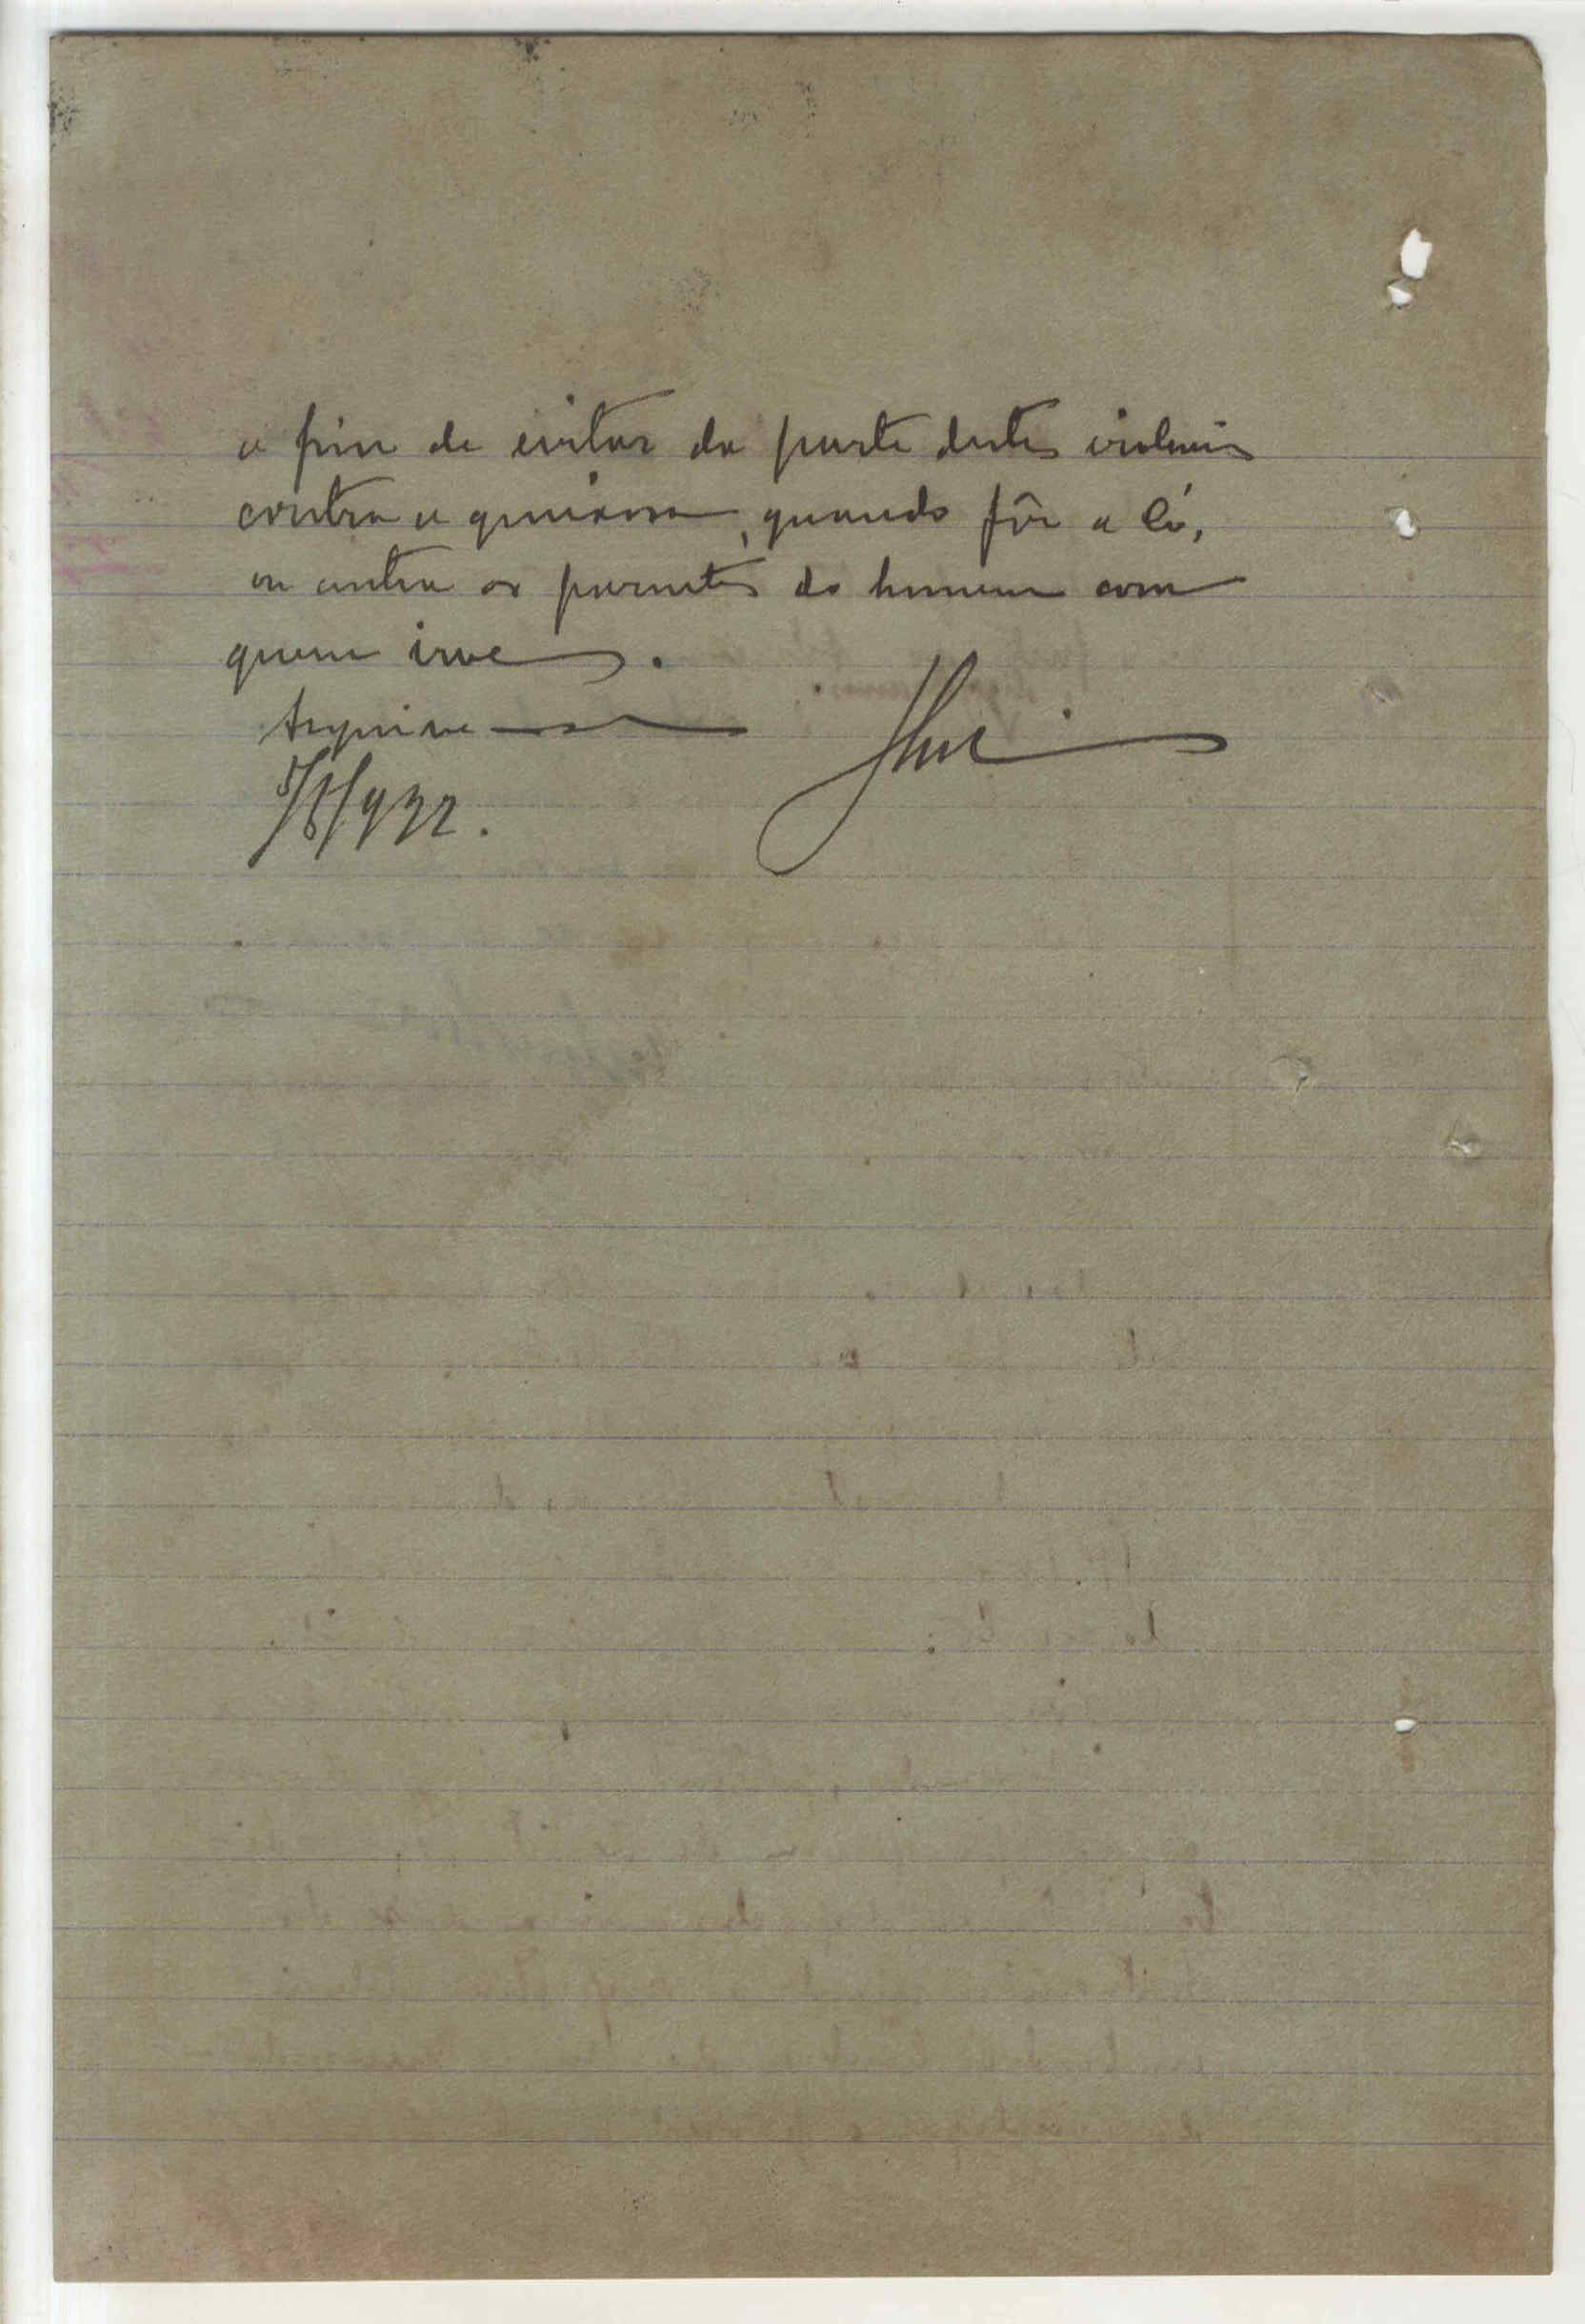 a fim de evitar da parte destes violencias
contra a queixosa, quando fôr a lá,
ou contra os parentes do homem com
quem vive.
Arquive-se
5/8/932.